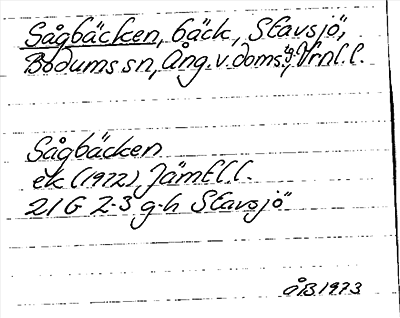 Sågbäcken, bäck, Stavsjö,
Bodums sn, Ång. v. doms.g, Vrnl. l.
Sågbäcken
ek (1972) Jämtl. l.
21 G 2-3 g-h Stavsjö
åB. 1973